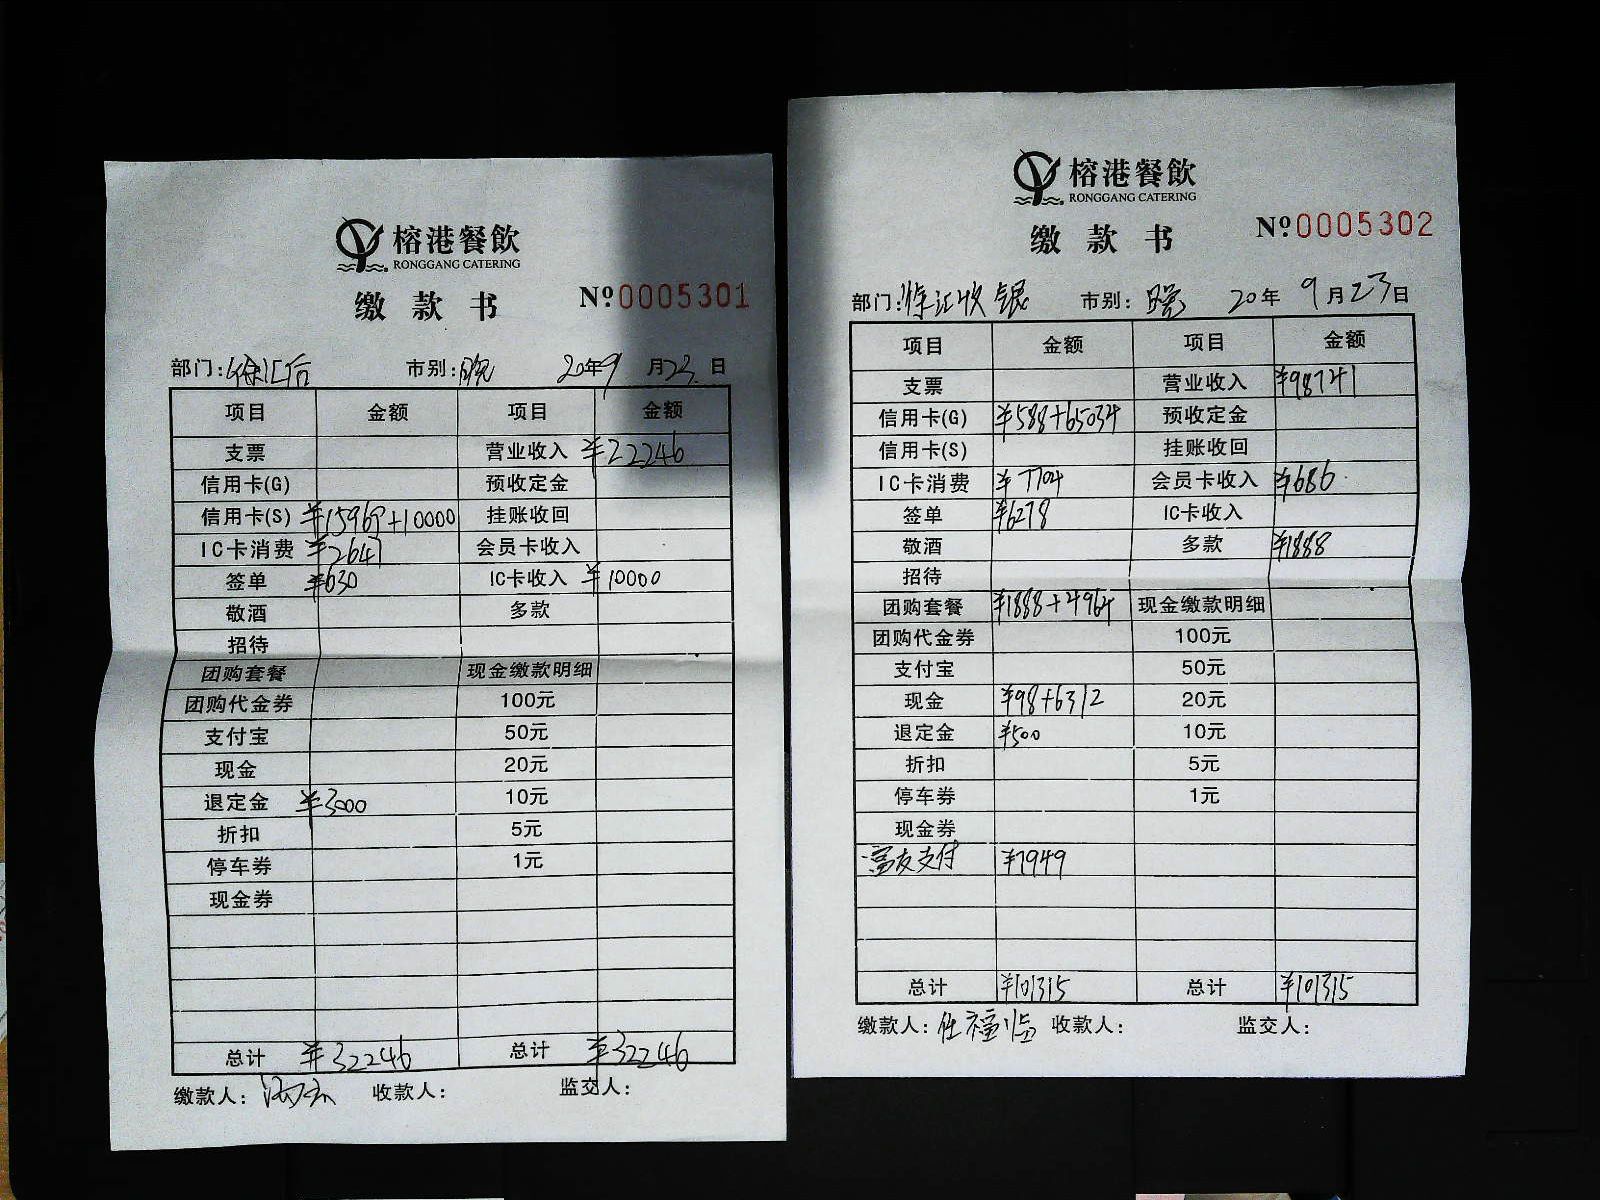 榕港餐飲
RONGGANG CATERING
缴款书 Nº0005301
部门:徐汇后 市别:晚 20年9月23日
项目 金额 项目 金额
支票 营业收入 ¥22246
信用卡(G) 预收定金
信用卡(S) ¥15969+10000 挂账收回
IC卡消费 ¥2647 会员卡收入
签单 ¥630 IC卡收入 ¥10000
敬酒 多款
招待
团购套餐 现金缴款明细
团购代金券 100元
支付宝 50元
现金 20元
退定金 ¥3000 10元
折扣 5元
停车券 1元
现金券
总计 ¥32246 总计 ¥32246
缴款人: 收款人: 监交人:
榕港餐飲
RONGGANG CATERING
缴款书 Nº0005302
部门:徐汇收银 市别:晚 20年9月23日
项目 金额 项目 金额
支票 营业收入 ¥98741
信用卡(G) ¥588+65034 预收定金
信用卡(S) 挂账收回
IC卡消费 ¥7704 会员卡收入 ¥686
签单 ¥6278 IC卡收入
敬酒 多款 ¥1888
招待
团购套餐 ¥1888+4964 现金缴款明细
团购代金券 100元
支付宝 50元
现金 ¥98+6312 20元
退定金 ¥500 10元
折扣 5元
停车券 1元
现金券
富友支付 ¥7949
总计 ¥101315 总计 ¥101315
缴款人:任福临 收款人: 监交人: